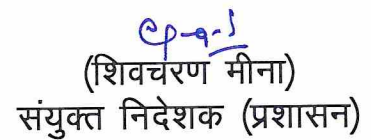 (शिवचरण मीना)
संयुक्त निदेशक (प्रशासन)